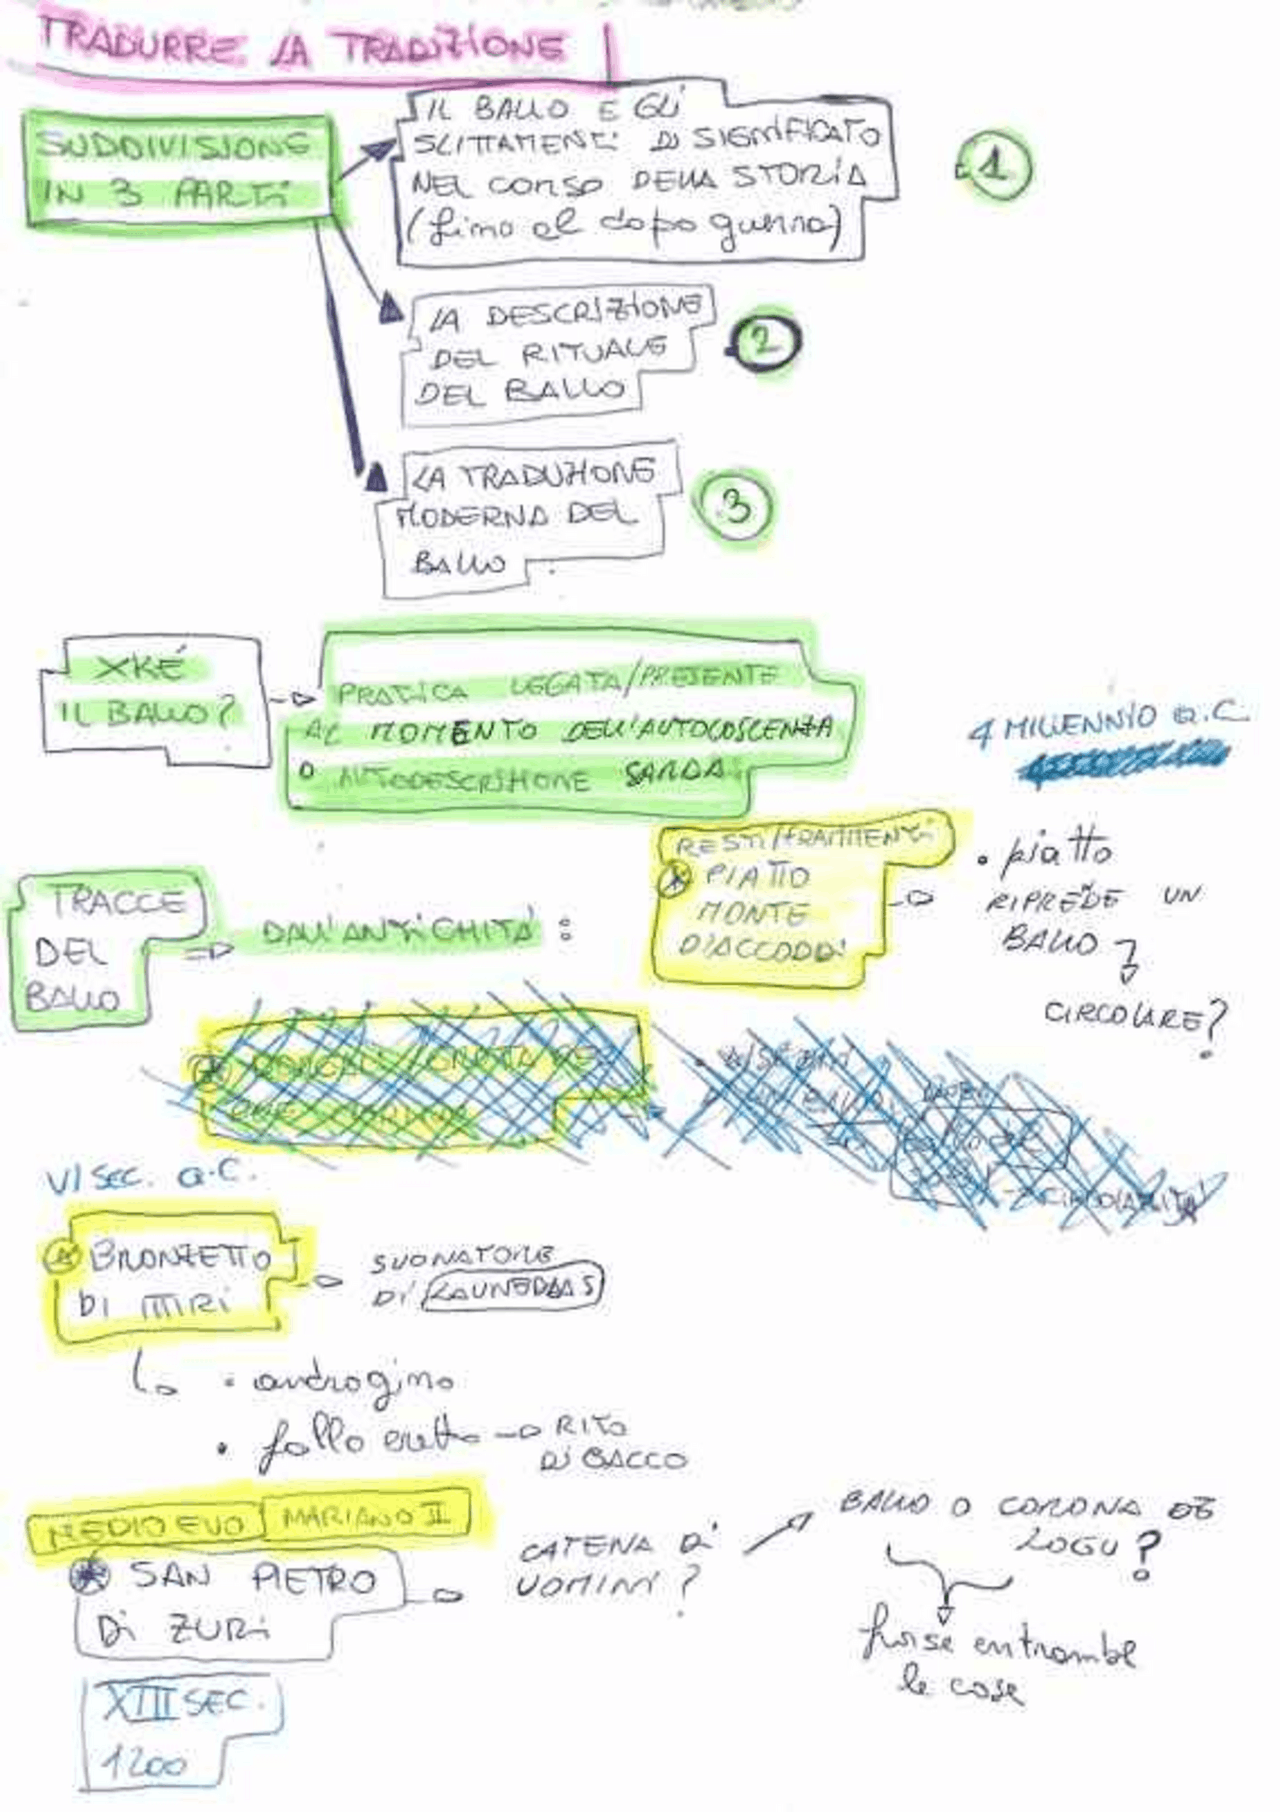 TRADURRE LA TRADIZIONE
SUDDIVISIONE
IN 3 PARTI
IL BALLO E GLI
SLITTAMENTI DI SIGNIFICATO
NEL CORSO DELLA STORIA
(fino al dopo guerra)
1
LA DESCRIZIONE
DEL RITUALE
DEL BALLO
2
LA TRADUZIONE
MODERNA DEL
BALLO
3
XKÉ
IL BALLO?
PRATICA LEGATA/PRESENTE
AL MOMENTO DELL'AUTOCOSCENZA
O AUTODESCRIZIONE SARDA
4 MILLENNIO a.C.
TRACCE
DEL
BALLO
DALL'ANTICHITÁ:
RESTI/FRAMMENTI
PIATTO
MONTE
D'ACCODDI
• piatto
RIPRĒDE UN
BALLO
CIRCOLARE?
VI SEC. a.C.
BRONZETTO
DI ITTIRI
SUONATORE
DI LAUNEDDAS
• androgino
• fallo eretto → RITO
DI BACCO
MEDIO EVO MARIANO II
SAN PIETRO
DI ZURI
CATENA DI
UOMINI?
BALLO O CORONA DE
LOGU?
forse entrambe
le cose
XIII SEC.
1200